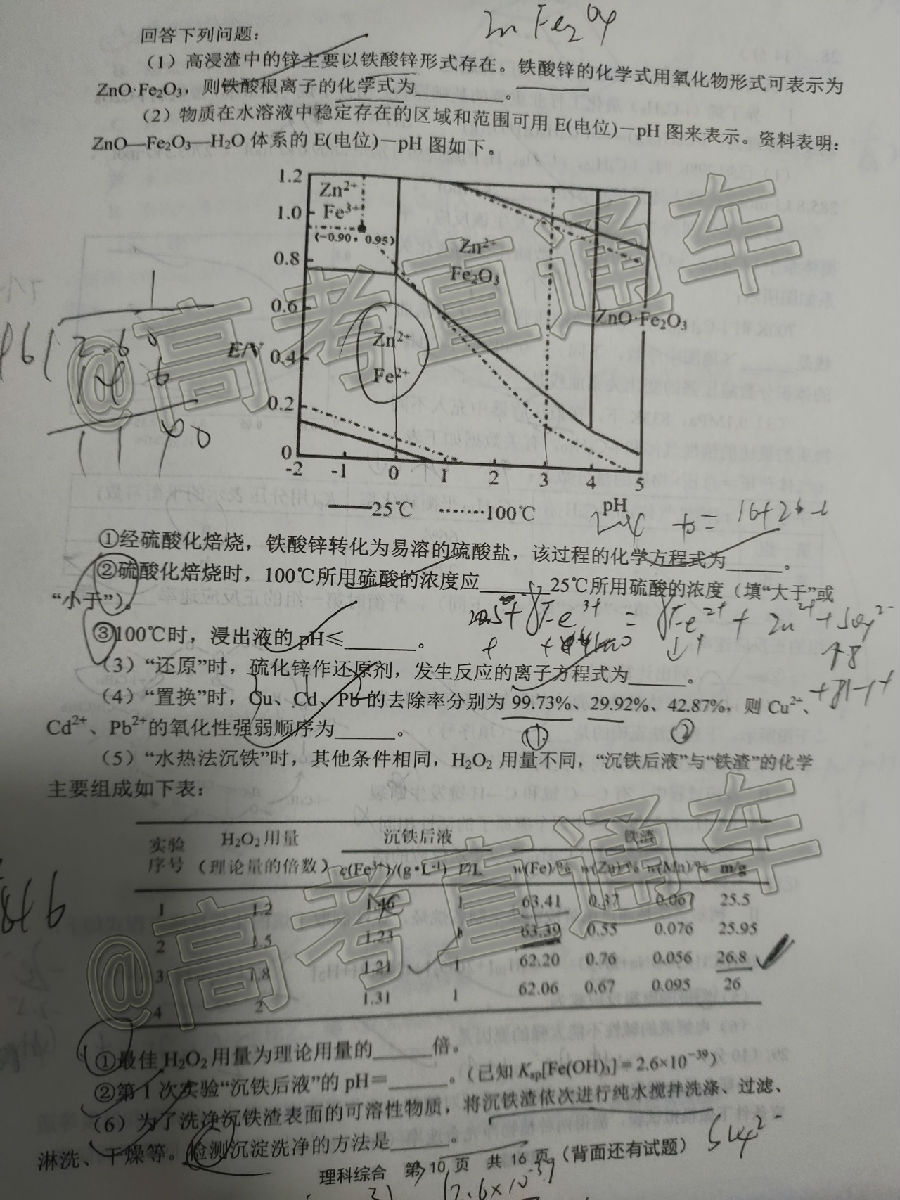 ZnFe2O4
回答下列问题：
（1）高浸渣中的锌主要以铁酸锌形式存在。铁酸锌的化学式用氧化物形式可表示为
ZnO·Fe₂O₃，则铁酸根离子的化学式为______。
（2）物质在水溶液中稳定存在的区域和范围可用 E(电位)－pH 图来表示。资料表明：
ZnO—Fe₂O₃—H₂O 体系的 E(电位)－pH 图如下。
1.2
Zn²⁺
Fe³⁺
1.0
(−0.90，0.95)
Zn²⁺
Fe₂O₃
0.8
0.6
ZnO·Fe₂O₃
E/V
0.4
Zn²⁺
Fe²⁺
0.2
0
-2 -1 0 1 2 3 4 5
pH
——25℃ ·······100℃
①经硫酸化焙烧，铁酸锌转化为易溶的硫酸盐，该过程的化学方程式为______。
②硫酸化焙烧时，100℃所用硫酸的浓度应______25℃所用硫酸的浓度（填“大于”或
“小于”）。
③100℃时，浸出液的 pH≤______。
（3）“还原”时，硫化锌作还原剂，发生反应的离子方程式为______。
（4）“置换”时，Cu、Cd、Pb 的去除率分别为 99.73%、29.92%、42.87%，则 Cu²⁺、
Cd²⁺、Pb²⁺的氧化性强弱顺序为______。
（5）“水热法沉铁”时，其他条件相同，H₂O₂ 用量不同，“沉铁后液”与“铁渣”的化学
主要组成如下表：
实验序号 H₂O₂用量（理论量的倍数） 沉铁后液 铁渣
c(Fe³⁺)/(g·L⁻¹) V/L w(Fe)/% w(Zn)/% w(Mn)/% m/g
1 1.2 1.46 1 63.41 0.37 0.067 25.5
2 1.5 1.23 1 63.39 0.55 0.076 25.95
3 1.8 1.21 1 62.20 0.76 0.056 26.8
4 2 1.31 1 62.06 0.67 0.095 26
①最佳 H₂O₂用量为理论用量的______倍。
②第 1 次实验“沉铁后液”的 pH＝______。（已知 Ksp[Fe(OH)₃]＝2.6×10⁻³⁹）
（6）为了洗净沉铁渣表面的可溶性物质，将沉铁渣依次进行纯水搅拌洗涤、过滤、
淋洗、干燥等。检测沉淀洗净的方法是______。
SO4²⁻
理科综合 第 10 页 共 16 页（背面还有试题）
@高考直通车
@高考直通车